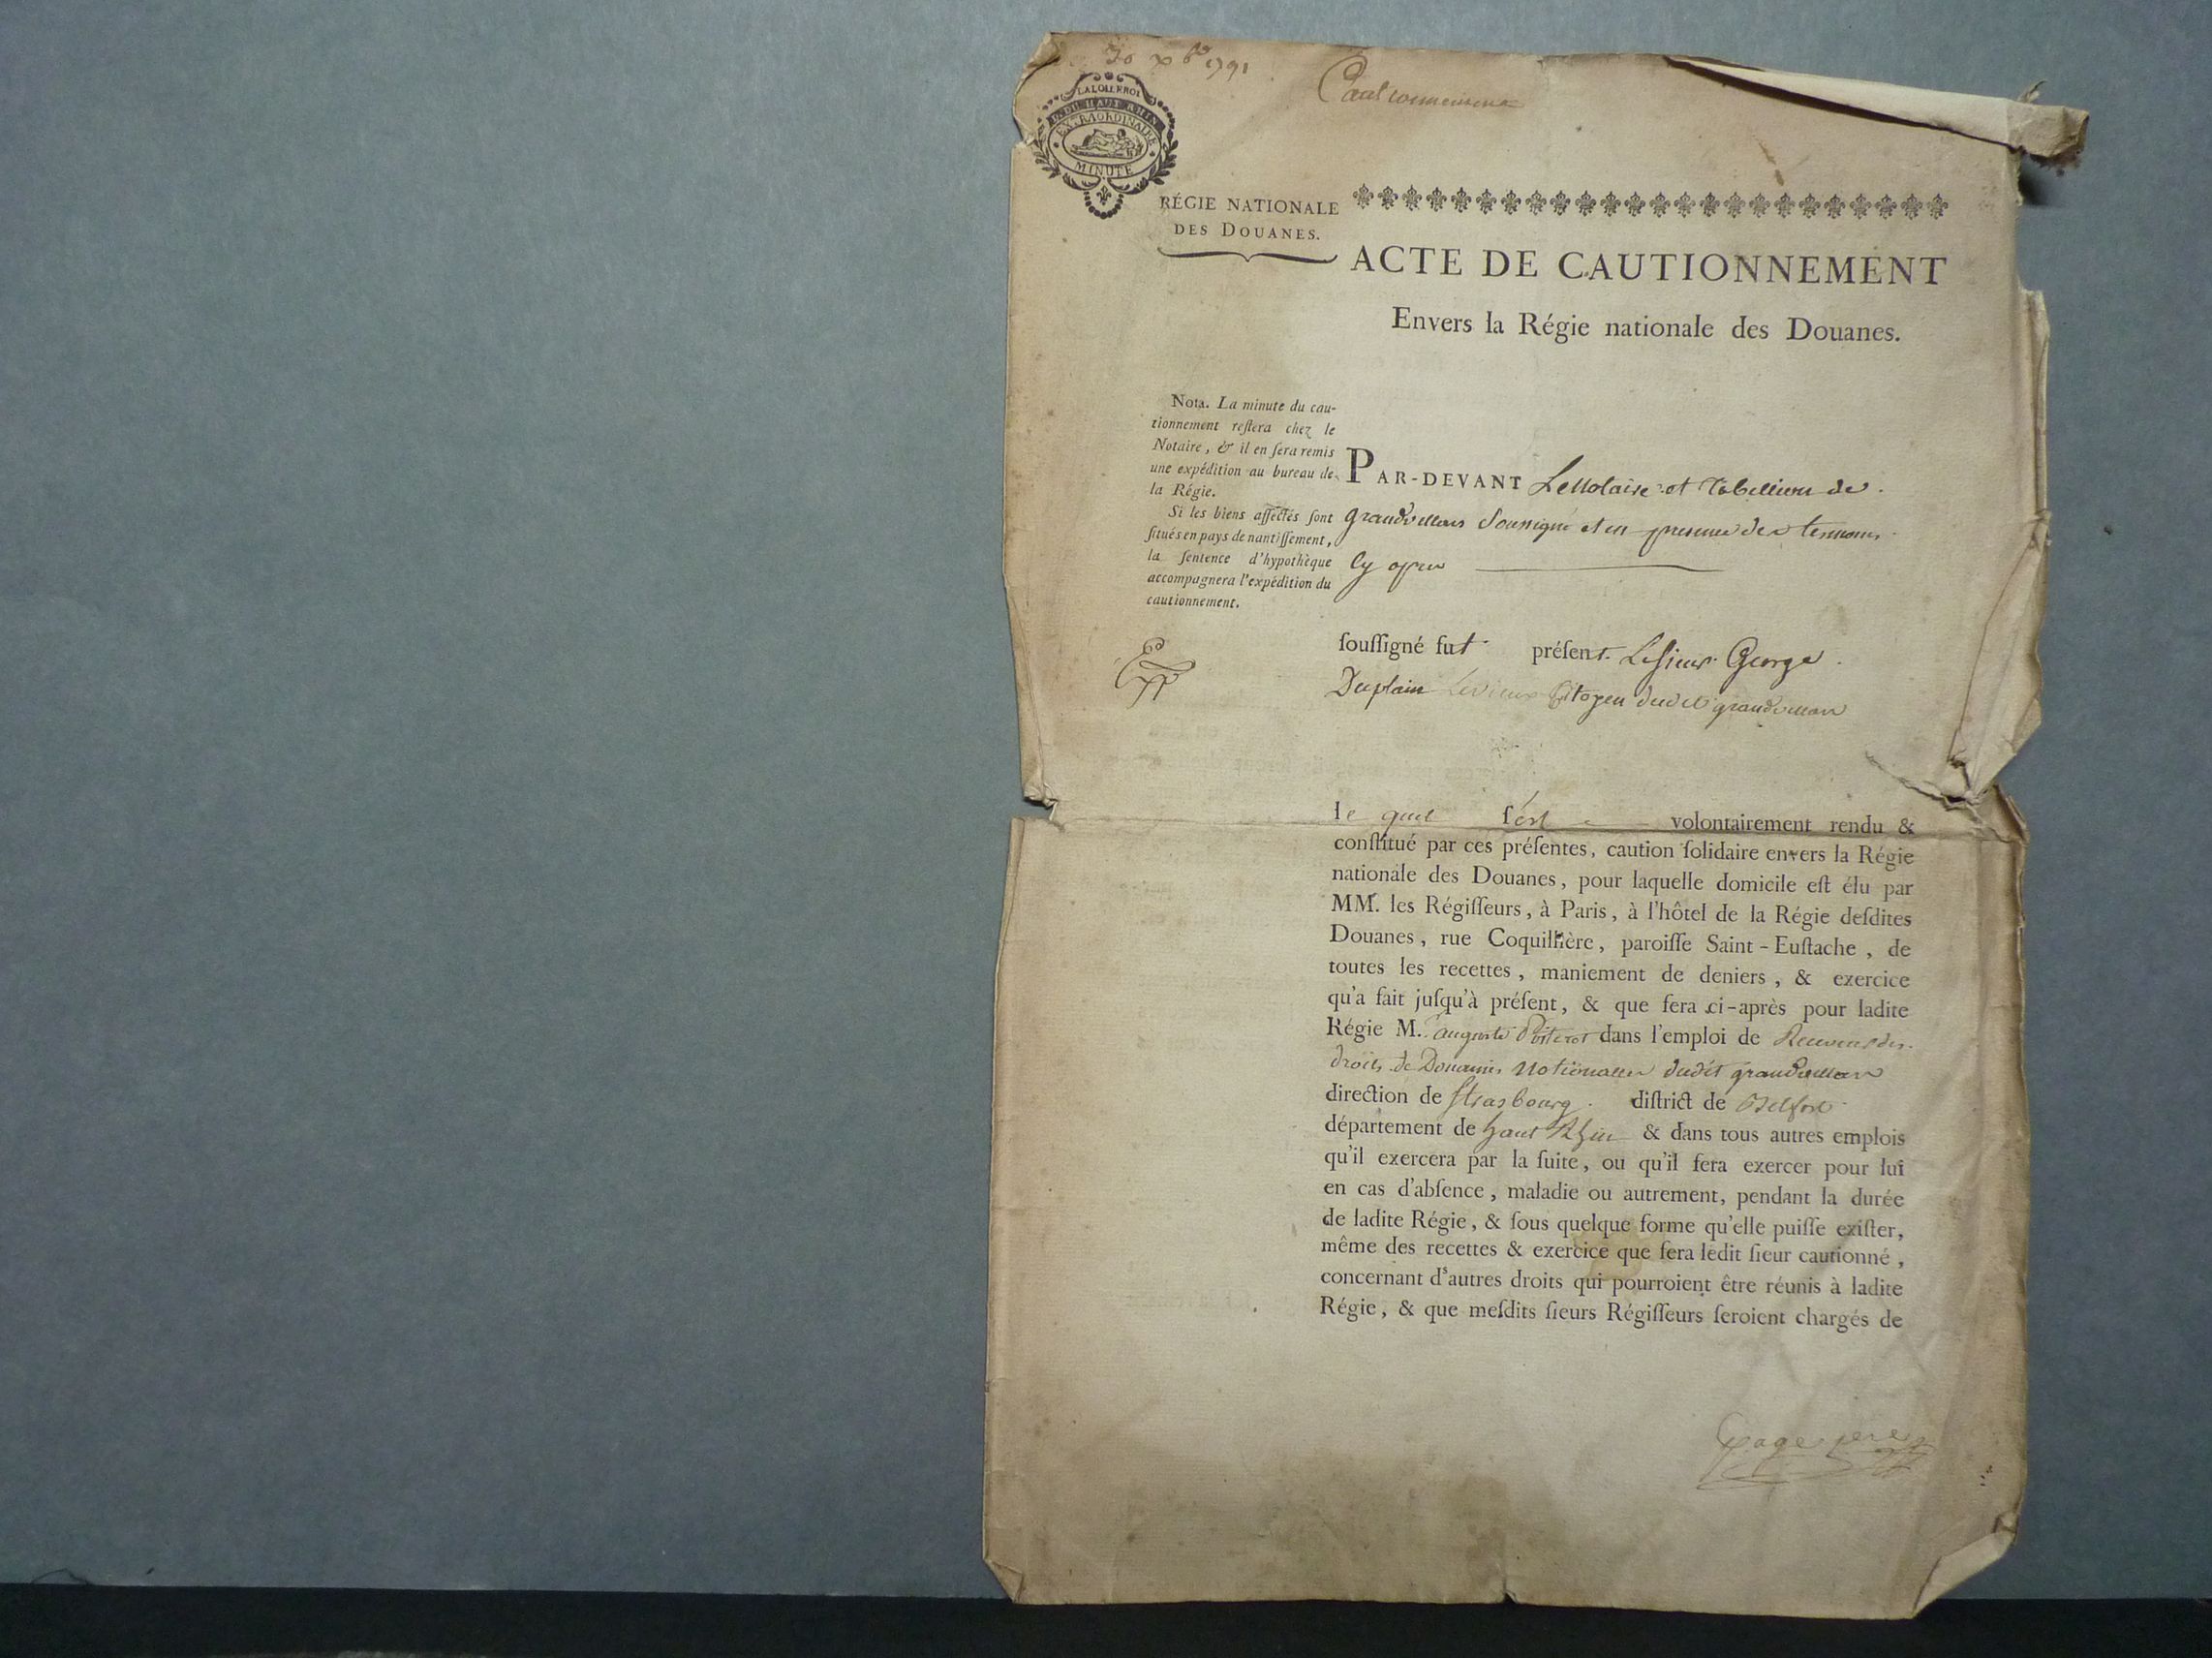 30 xbre 1791
Cautionnement
LA LOI LE ROI
DÉP. DU HAUT RHIN
EXTRAORDINAIRE
MINUTE
RÉGIE NATIONALE
DES DOUANES.
ACTE DE CAUTIONNEMENT
Envers la Régie nationale des Douanes.
Nota. La minute du cau-
tionnement reſtera chez le
Notaire, & il en ſera remis
une expédition au bureau de
la Régie.
Si les biens affectés ſont
ſitués en pays de nantiſſement,
la ſentence d'hypothèque
accompagnera l'expédition du
cautionnement.
PAR-DEVANT Le Notaire et Tabellion de
grandvillars Soussigné et en presence des temoins
cy apres
ſouſſigné fut préſent Le Sieur George
Duplain Citoyen dudit grandvillars
le quel s'est volontairement rendu &
conſtitué par ces préſentes, caution ſolidaire envers la Régie
nationale des Douanes, pour laquelle domicile eſt élu par
MM. les Régiſſeurs, à Paris, à l'hôtel de la Régie deſdites
Douanes, rue Coquillière, paroiſſe Saint-Euſtache, de
toutes les recettes, maniement de deniers, & exercice
qu'a fait juſqu'à préſent, & que fera ci-après pour ladite
Régie M. auguste dans l'emploi de Receveur des
droits de Douannes Nationalles dudit grandvillars
direction de Strasbourg. diſtrict de Belfort
département de haut Rhin & dans tous autres emplois
qu'il exercera par la ſuite, ou qu'il fera exercer pour lui
en cas d'abſence, maladie ou autrement, pendant la durée
de ladite Régie, & ſous quelque forme qu'elle puiſſe exiſter,
même des recettes & exercice que fera ledit ſieur cautionné,
concernant d'autres droits qui pourroient être réunis à ladite
Régie, & que meſdits ſieurs Régiſſeurs ſeroient chargés de